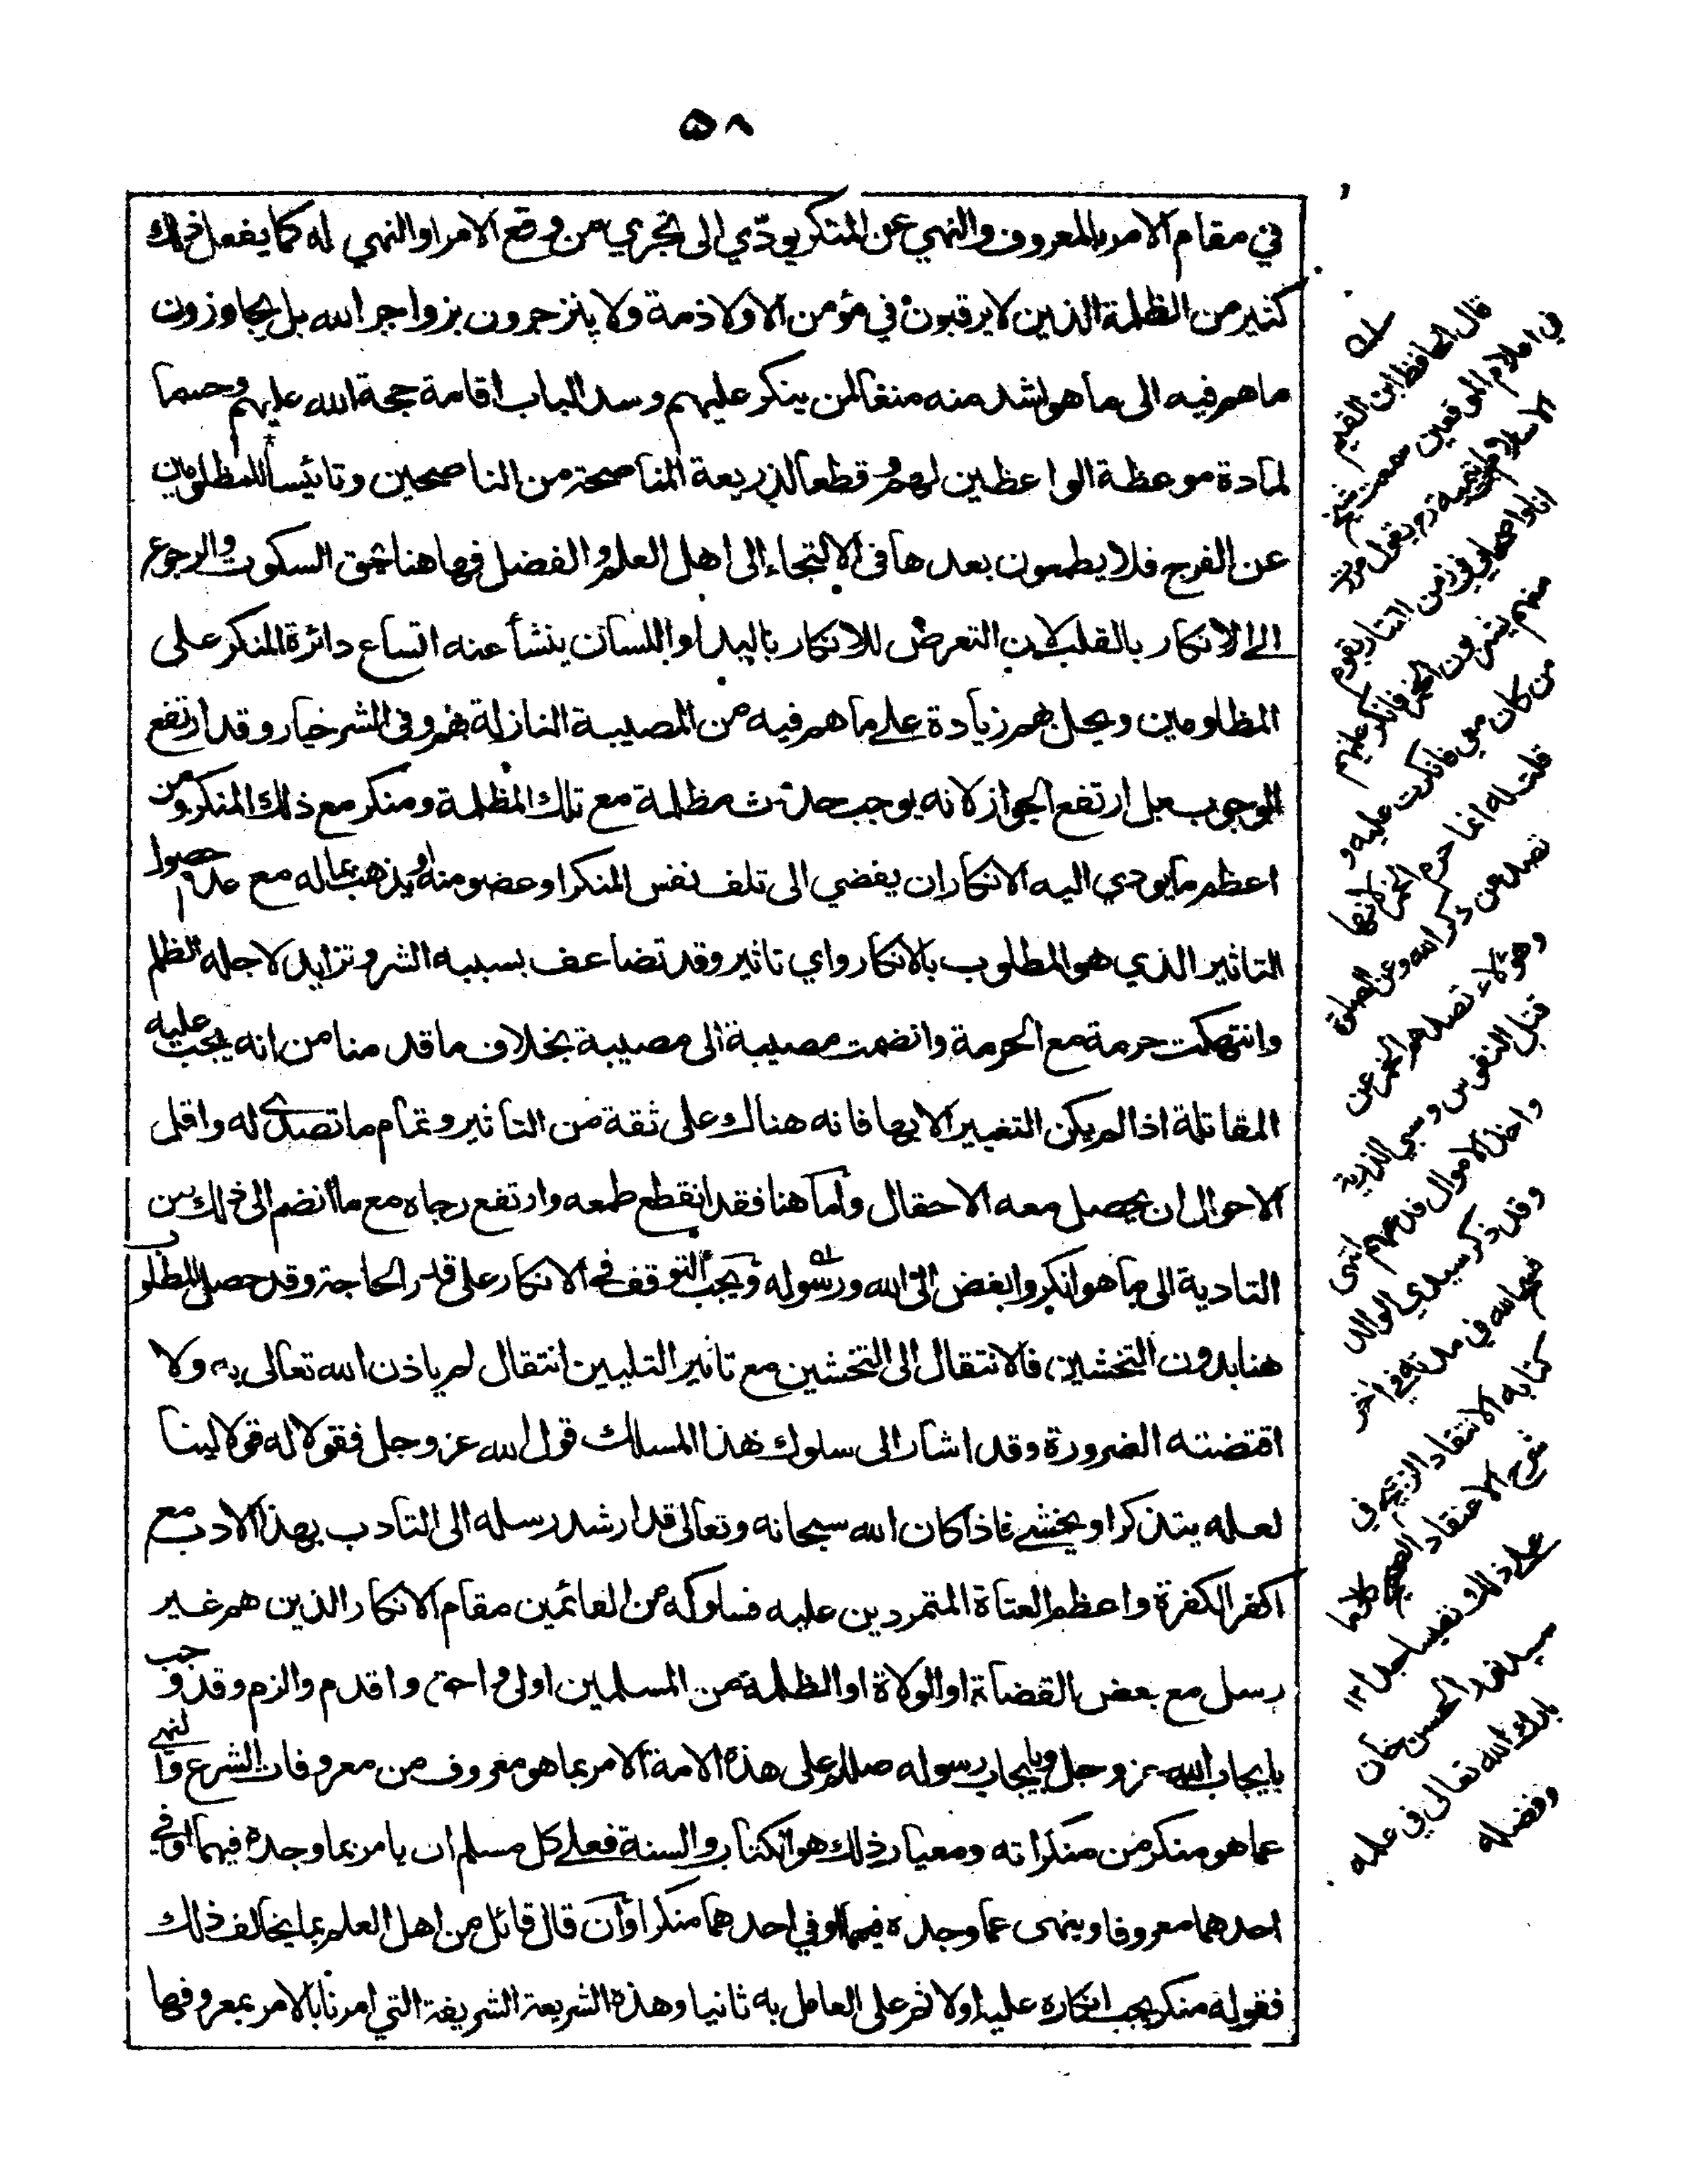 ٥٨
في مقام الامر بالمعروف والنهي عن المنكر يودّي الى تجري من وقع الامر او النهي له كما يفعل ذلك
كثير من الظلمة الذين لا يرقبون في مؤمن الا ولا ذمة ولا ينزجرون بزواجر الله بل يجاوزون
ما هم فيه الى ما هو اشد منه منعا لمن ينكر عليهم وسد الباب اقامة حجة الله عليهم وحسما
لمادة موعظة الواعظين لهم وقطعا لذريعة المناصحة من الناصحين وتائيسا للمظلومين
عن الفرج فلا يطمعون بعدها في الالتجاء الى اهل العلم والفضل فها هنا يحق السكوت والرجوع
الى الانكار بالقلب لان التعرض للانكار باليد او اللسان ينشأ عنه اتساع دائرة المنكر على
المظلومين ويحل بهم زيادة على ما هم فيه من المصيبة النازلة بهم وفى الشر خيار وقد ارتفع
الوجوب بل ارتفع الجواز لانه يوجب حدوث مظلمة مع تلك المظلمة ومنكر مع ذلك المنكر ومن
اعظم ما يودي اليه الانكار ان يفضي الى تلف نفس المنكر او عضو منه او يذهب بماله مع عدم حصول
التاثير الذي هو المطلوب بالانكار واي تاثير وقد تضاعف بسببه الشر وتزايد لاجله الظلم
وانتهكت حرمة مع الحرمة وانضمت مصيبة الى مصيبة بخلاف ما قدمنا من انه يجب عليه
المقاتلة اذا لم يكن التغيير الا بها فانه هناك على ثقة من التاثير وتمام ما تصدى له واقل
الاحوال ان يحصل معه الاحتمال واما هنا فقد انقطع طمعه وارتفع رجاه مع ما انضم الى ذلك من
التادية الى ما هو انكر وابغض الى الله ورسوله ويجب التوقف في الانكار على قدر الحاجة وقد حصل المطلوب
هنا بدون التخشين فالانتقال الى التخشين مع تاثير التليين انتقال لم ياذن الله تعالى به ولا
اقتضته الضرورة وقد اشار الى سلوك هذا المسلك قول الله عز وجل فقولا له قولا لينا
لعله يتذكر او يخشى فاذا كان الله سبحانه وتعالى قد ارشد رسله الى التادب بهذا الادب مع
اكفر الكفرة واعظم العتاة المتمردين عليه فسلوكه من القائمين مقام الانكار الذين هم غير
رسل مع بعض القضاة او الولاة او الظلمة من المسلمين اولى واحق واقدم والزم وقد وجب
بايجاب الله عز وجل وبايجاب رسوله صللم على هذه الامة الامر بما هو معروف من معروفات الشرع والنهي
عما هو منكر من منكراته ومعيار ذلك هو الكتاب والسنة فعلى كل مسلم ان يامر بما وجده فيهما او في
احدهما معروفا وينهى عما وجده فيهما او في احدهما منكرا وان قال قائل من اهل العلم بما يخالف ذلك
فقوله منكر يجب انكاره عليه اولا ثم على العامل به ثانيا وهذه الشريعة الشريفة التي امرنا بالامر بمعروفها
قال الحافظ ابن القيم
في اعلام الموقعين سمعت شيخ
الاسلام ابن تيمية رح يقول مررت
انا واصحابي في زمن التتار بقوم
منهم يشربون الخمر فانكر عليهم
من كان معي فانكرت عليه و
قلت له انما حرم الخمر لانها
تصد عن ذكر الله وعن الصلوة
وهؤلاء تصدهم الخمر عن
قتل النفوس وسبي الذرية
واخذ الاموال فدعهم انتهى
وقد ذكر سيدي الوالد
كتابه الانتقاد الرجيح في
شرح الاعتقاد الصحيح كلاما
على ذلك نفيسا جدا ١٢
سيد نور الحسن خان
بارك الله تعالى في علمه
وفضله